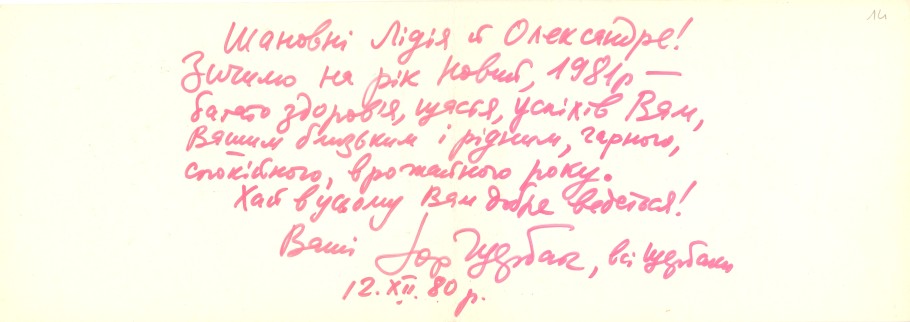 14
Шановні Лідія й Олександре!
Зичимо на рік Новий, 1981р —
багато здоров'я, щастя, успіхів Вам,
Вашим близьким і рідним, гарного,
спокійного, врожайного року.
Хай в усьому Вам добре ведеться!
Ваші Юр Щербак, всі Щербаки
12.XII.80 р.